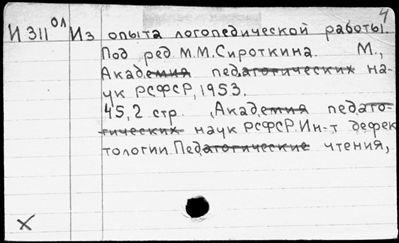 4
И 311 ол Из опыта логопедической работы.
Под ред М.М.Сироткина. М.,
Академия педагогических на-
ук РСФСР, 1953.
45,2 стр. (Академия педаго-
гических наук РСФСР. Ин-т дефек
тологии. Педагогические чтения,
X